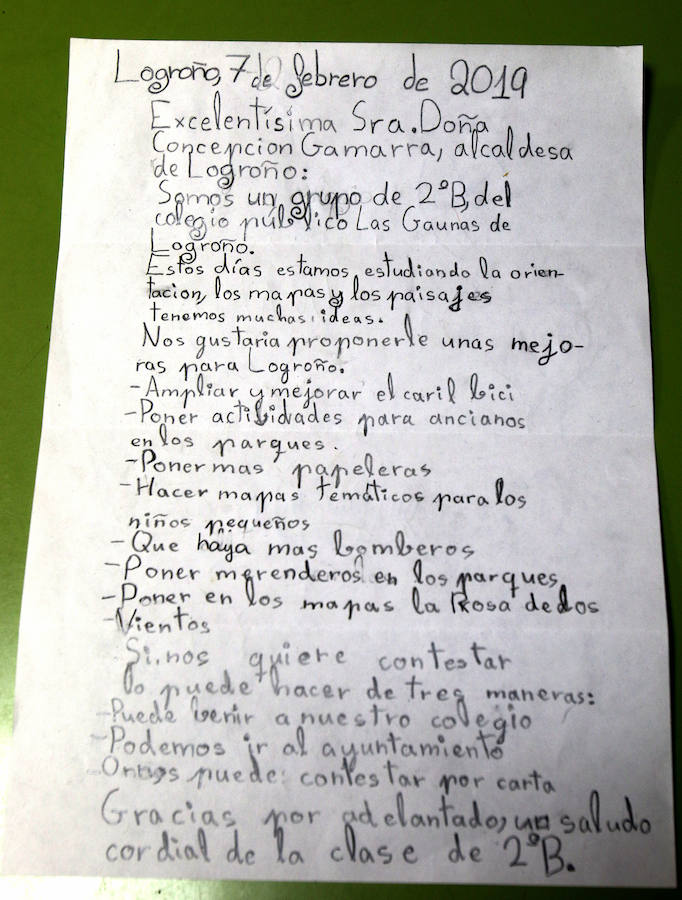 Logroño, 7 de febrero de 2019
Excelentísima Sra. Doña
Concepcion Gamarra, alcaldesa
de Logroño:
Somos un grupo de 2ºB, del
colegio público Las Gaunas de
Logroño.
Estos días estamos estudiando la orien-
tacion, los mapas y los paisajes
tenemos muchas ideas.
Nos gustaria proponerle unas mejo-
ras para Logroño.
-Ampliar y mejorar el caril bici
-Poner actibidades para ancianos
en los parques.
-Poner mas papeleras
-Hacer mapas temáticos para los
niños pequeños
-Que haya mas bomberos
-Poner merenderos en los parques
-Poner en los mapas la Rosa de los
-Vientos
Si nos quiere contestar
lo puede hacer de tres maneras:
-Puede benir a nuestro colegio
-Podemos ir al ayuntamiento
-O nos puede contestar por carta
Gracias por adelantado, un saludo
cordial de la clase de 2ºB.